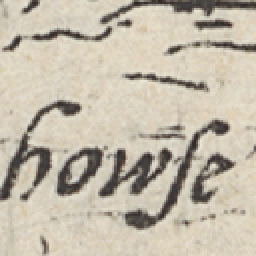 howſe